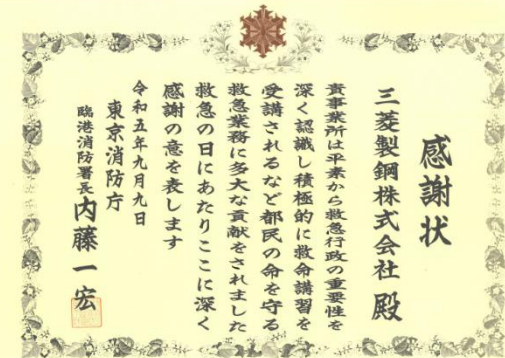 感謝状
三菱製鋼株式会社 殿
貴事業所は平素から救急行政の重要性を
深く認識し積極的に救命講習を
受講されるなど都民の命を守る
救急業務に多大な貢献をされました
救急の日にあたりここに深く
感謝の意を表します
令和五年九月九日
東京消防庁
臨港消防署長 内藤一宏